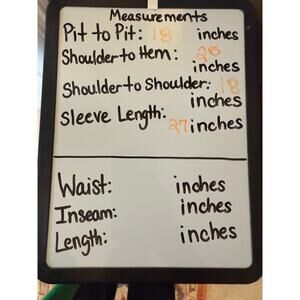 Measurements
Pit to Pit: 18 inches
Shoulder to Hem: 26
inches
Shoulder to Shoulder: 18
inches
Sleeve Length:
27 inches
Waist: inches
Inseam: inches
Length: inches